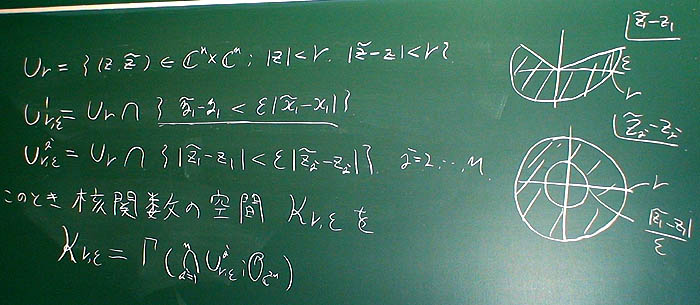 Ur = { (z, z̃) ∈ ℂⁿ×ℂⁿ ; |z| < r, |z̃-z| < r }
U¹r,ε = Ur ∩ { ỹ₁-y₁ < ε|x̃₁-x₁| }
Uʲr,ε = Ur ∩ { |z̃₁-z₁| < ε|z̃ⱼ-zⱼ| }, j=2,…,n
このとき 核関数の空間 Kr,ε を
Kr,ε = Γ( ⋂ⁿⱼ₌₁ Uʲr,ε ; 𝒪ℂ²ⁿ )
z̃₁-z₁
ε
r
z̃ⱼ-zⱼ
r
|z̃₁-z₁|
ε